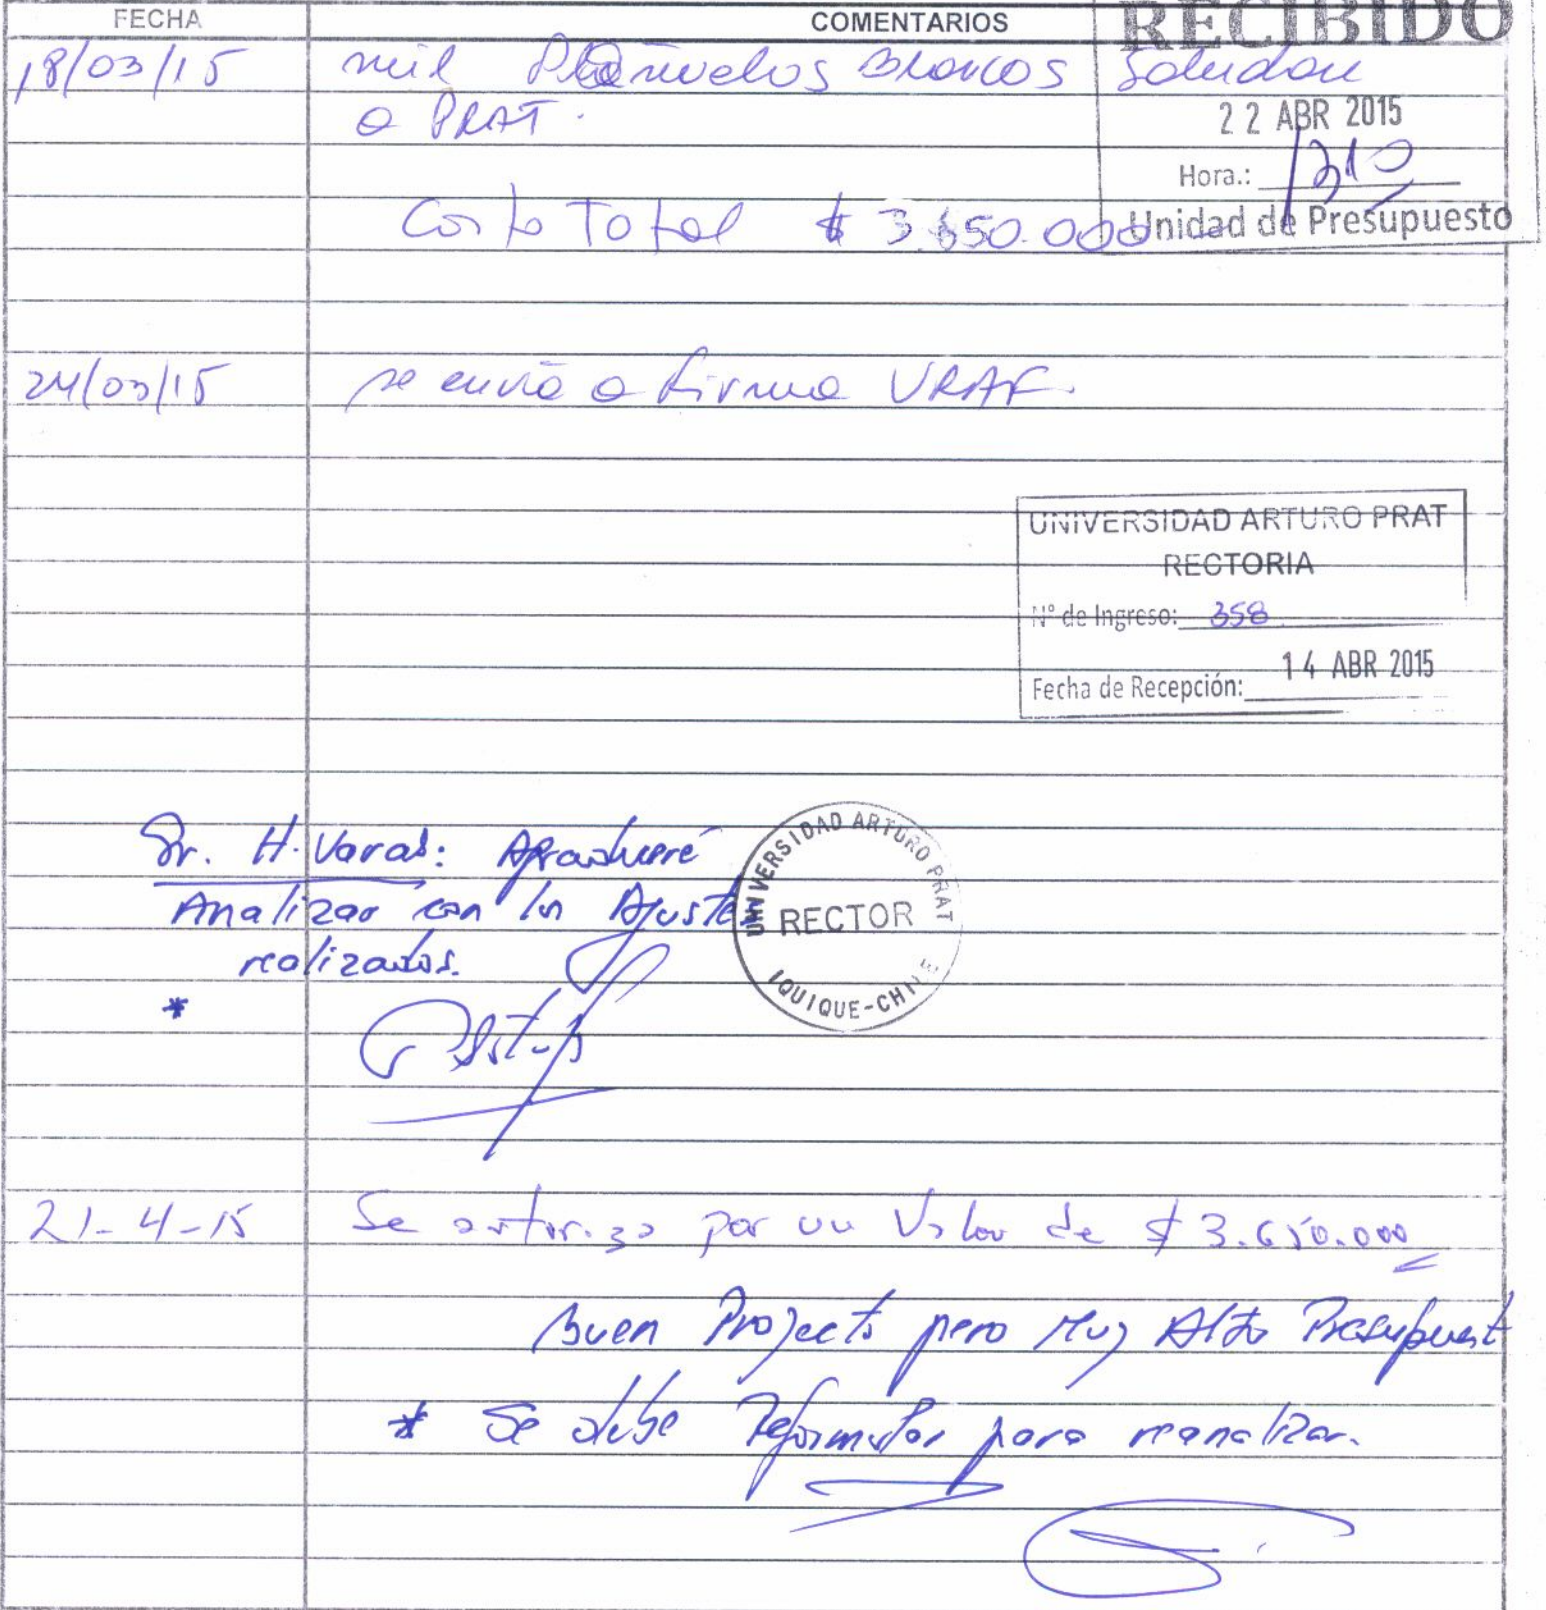 FECHA COMENTARIOS RECIBIDO
18/03/15 mil Pañuelos Blancos Saludan
a PRAT.
22 ABR 2015
Hora.: 1310
Costo Total $ 3.650.000
Unidad de Presupuesto
24/03/15 se envía a firma VRAF.
UNIVERSIDAD ARTURO PRAT
RECTORIA
N° de Ingreso: 358
Fecha de Recepción: 14 ABR 2015
Sr. H. Varas: Agradeceré
Analizar con los Ajustes
realizados.
*
UNIVERSIDAD ARTURO PRAT
RECTOR
IQUIQUE-CHILE
21-4-15 Se autoriza por un Valor de $ 3.650.000
Buen Projecto pero Muy Alto Presupuest
* Se debe Reformular para reanalizar.